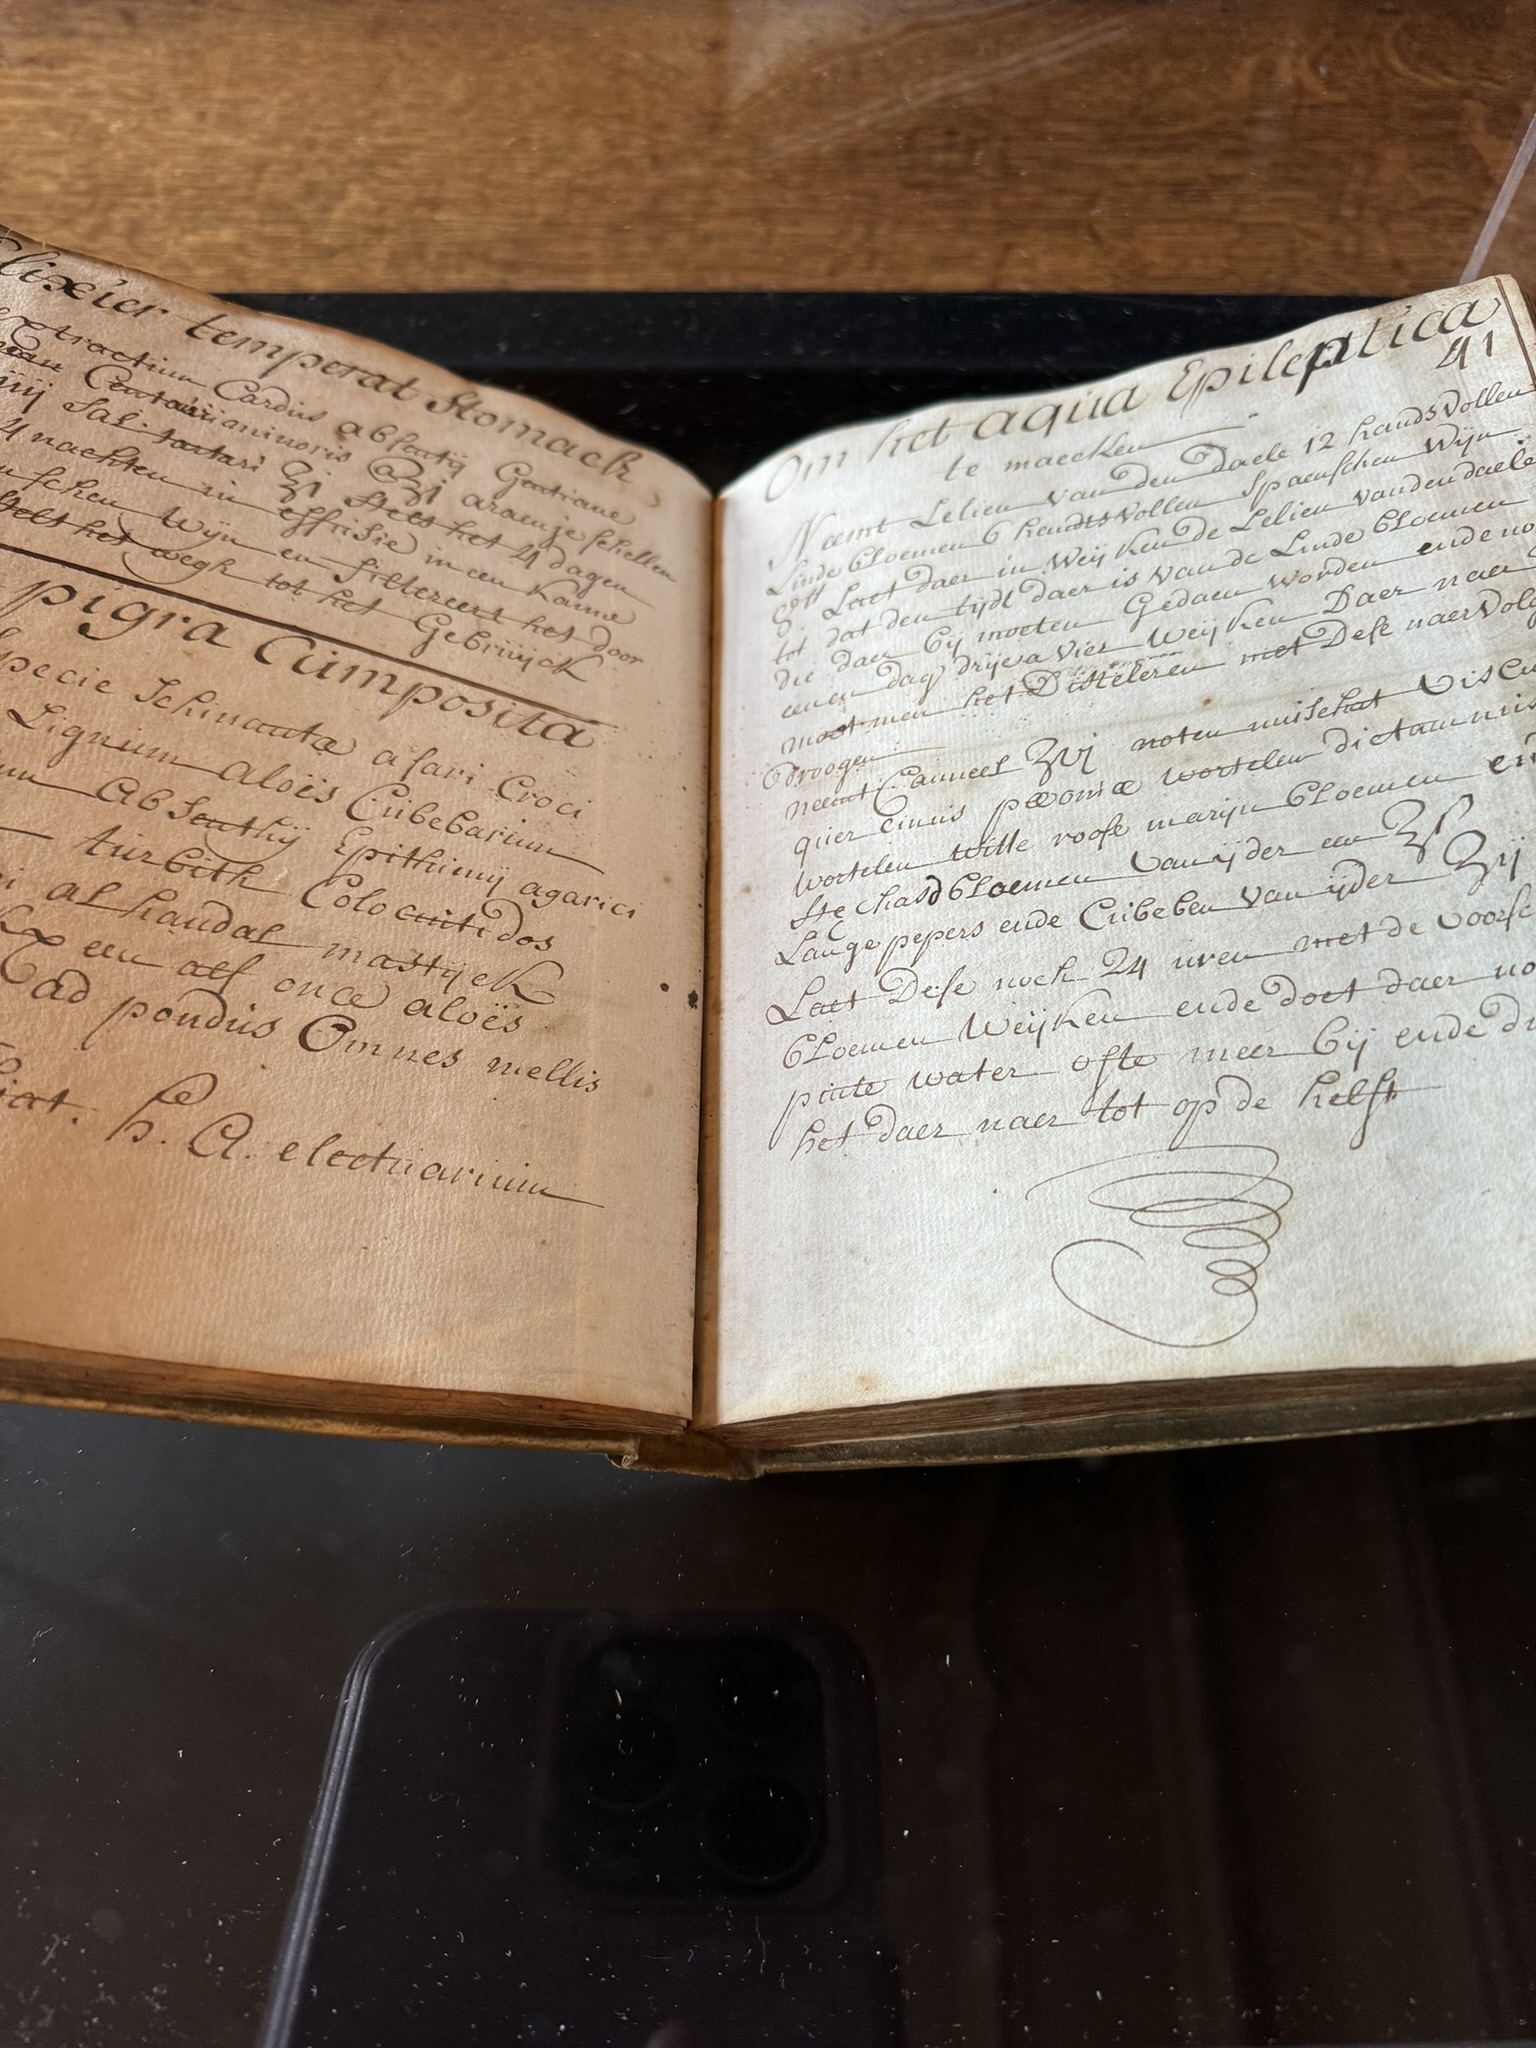 Elixier temperat Stomack
Extractium Cardus absentij Gentiane
Centauriiminoris ʒi araenjeschellen
iiij Sal tartari ʒi stelt het 4 dagen
4 nachten in effusie in een Kanne
schen Wijn en filtreert het door
stelt het wegh tot het Gebruijck
pigra Cumposita
Specie Schinantæ asari Croci
Lignum Aloïs Cubebarum
Absenthij Epithimij agarici
turbith Colocintidos
alhandal mastijck
een alf once aloës
ad pondus Omnes mellis
fiat. h. A. electuarium
Om het aqua Epileptica
41
te maecken
Neemt Lelien van den Daele 12 handsvollen
Linde bloemen 6 handtsvollen Spaenschen Wijn
8 tt Laet daer in Weijken de Lelien vanden daele
tot dat den tijdt daer is van de Linde bloemen
die daer bij moeten Gedaen worden ende no
eenen dag drije a vier Weijken Daer naer
moet men het Disteleren met Dese naervolg
Droogen
neemt Canneel ʒvj noten muschat Viscu
quiercinus pæoniæ wortelen dictamnus
wortelen witte roosemarijn bloemen en
stechasdbloemen van ijder een ʒß
Lange pepers ende Cubeben van ijder ʒij
Laet Dese noch 24 uren met de voorsc
bloemen Weijken ende doet daer no
pinte water ofte meer bij ende di
het daer naer tot op de helft